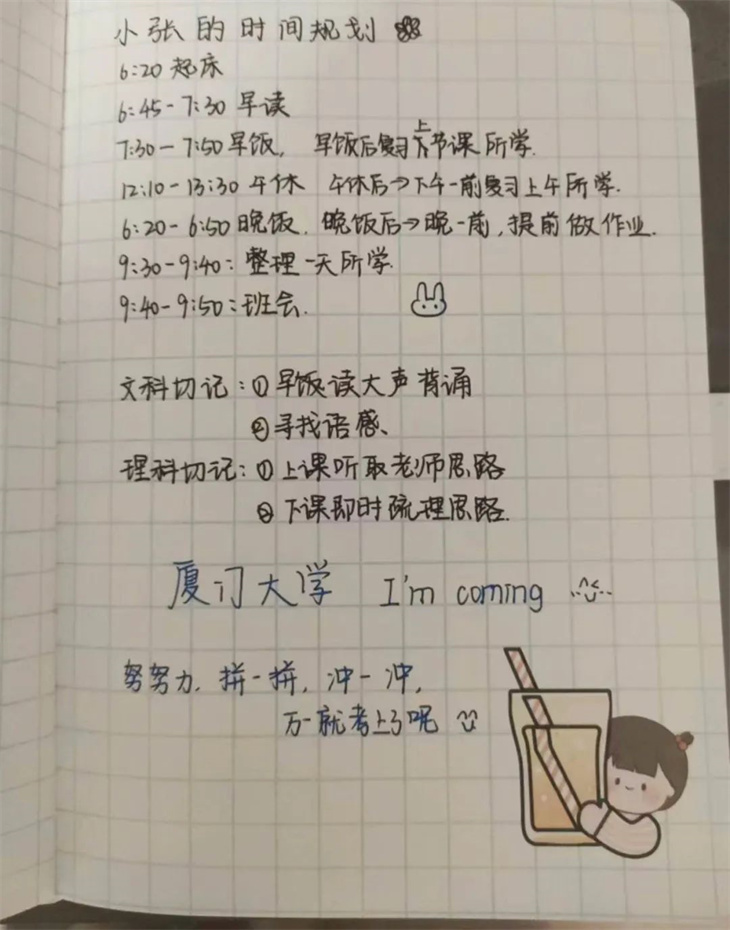 小张的时间规划
6:20 起床
6:45-7:30 早读
7:30-7:50早饭, 早饭后复习上节课所学.
12:10-13:30 午休 午休后→下午一前复习上午所学.
6:20-6:50 晚饭. 晚饭后→晚一前,提前做作业.
9:30-9:40: 整理一天所学.
9:40-9:50:班会.
文科切记:①早饭读大声背诵
②寻找语感、
理科切记:①上课听取老师思路
②下课即时疏理思路.
厦门大学 I'm coming
努努力, 拼一拼, 冲一冲,
万一就考上了呢